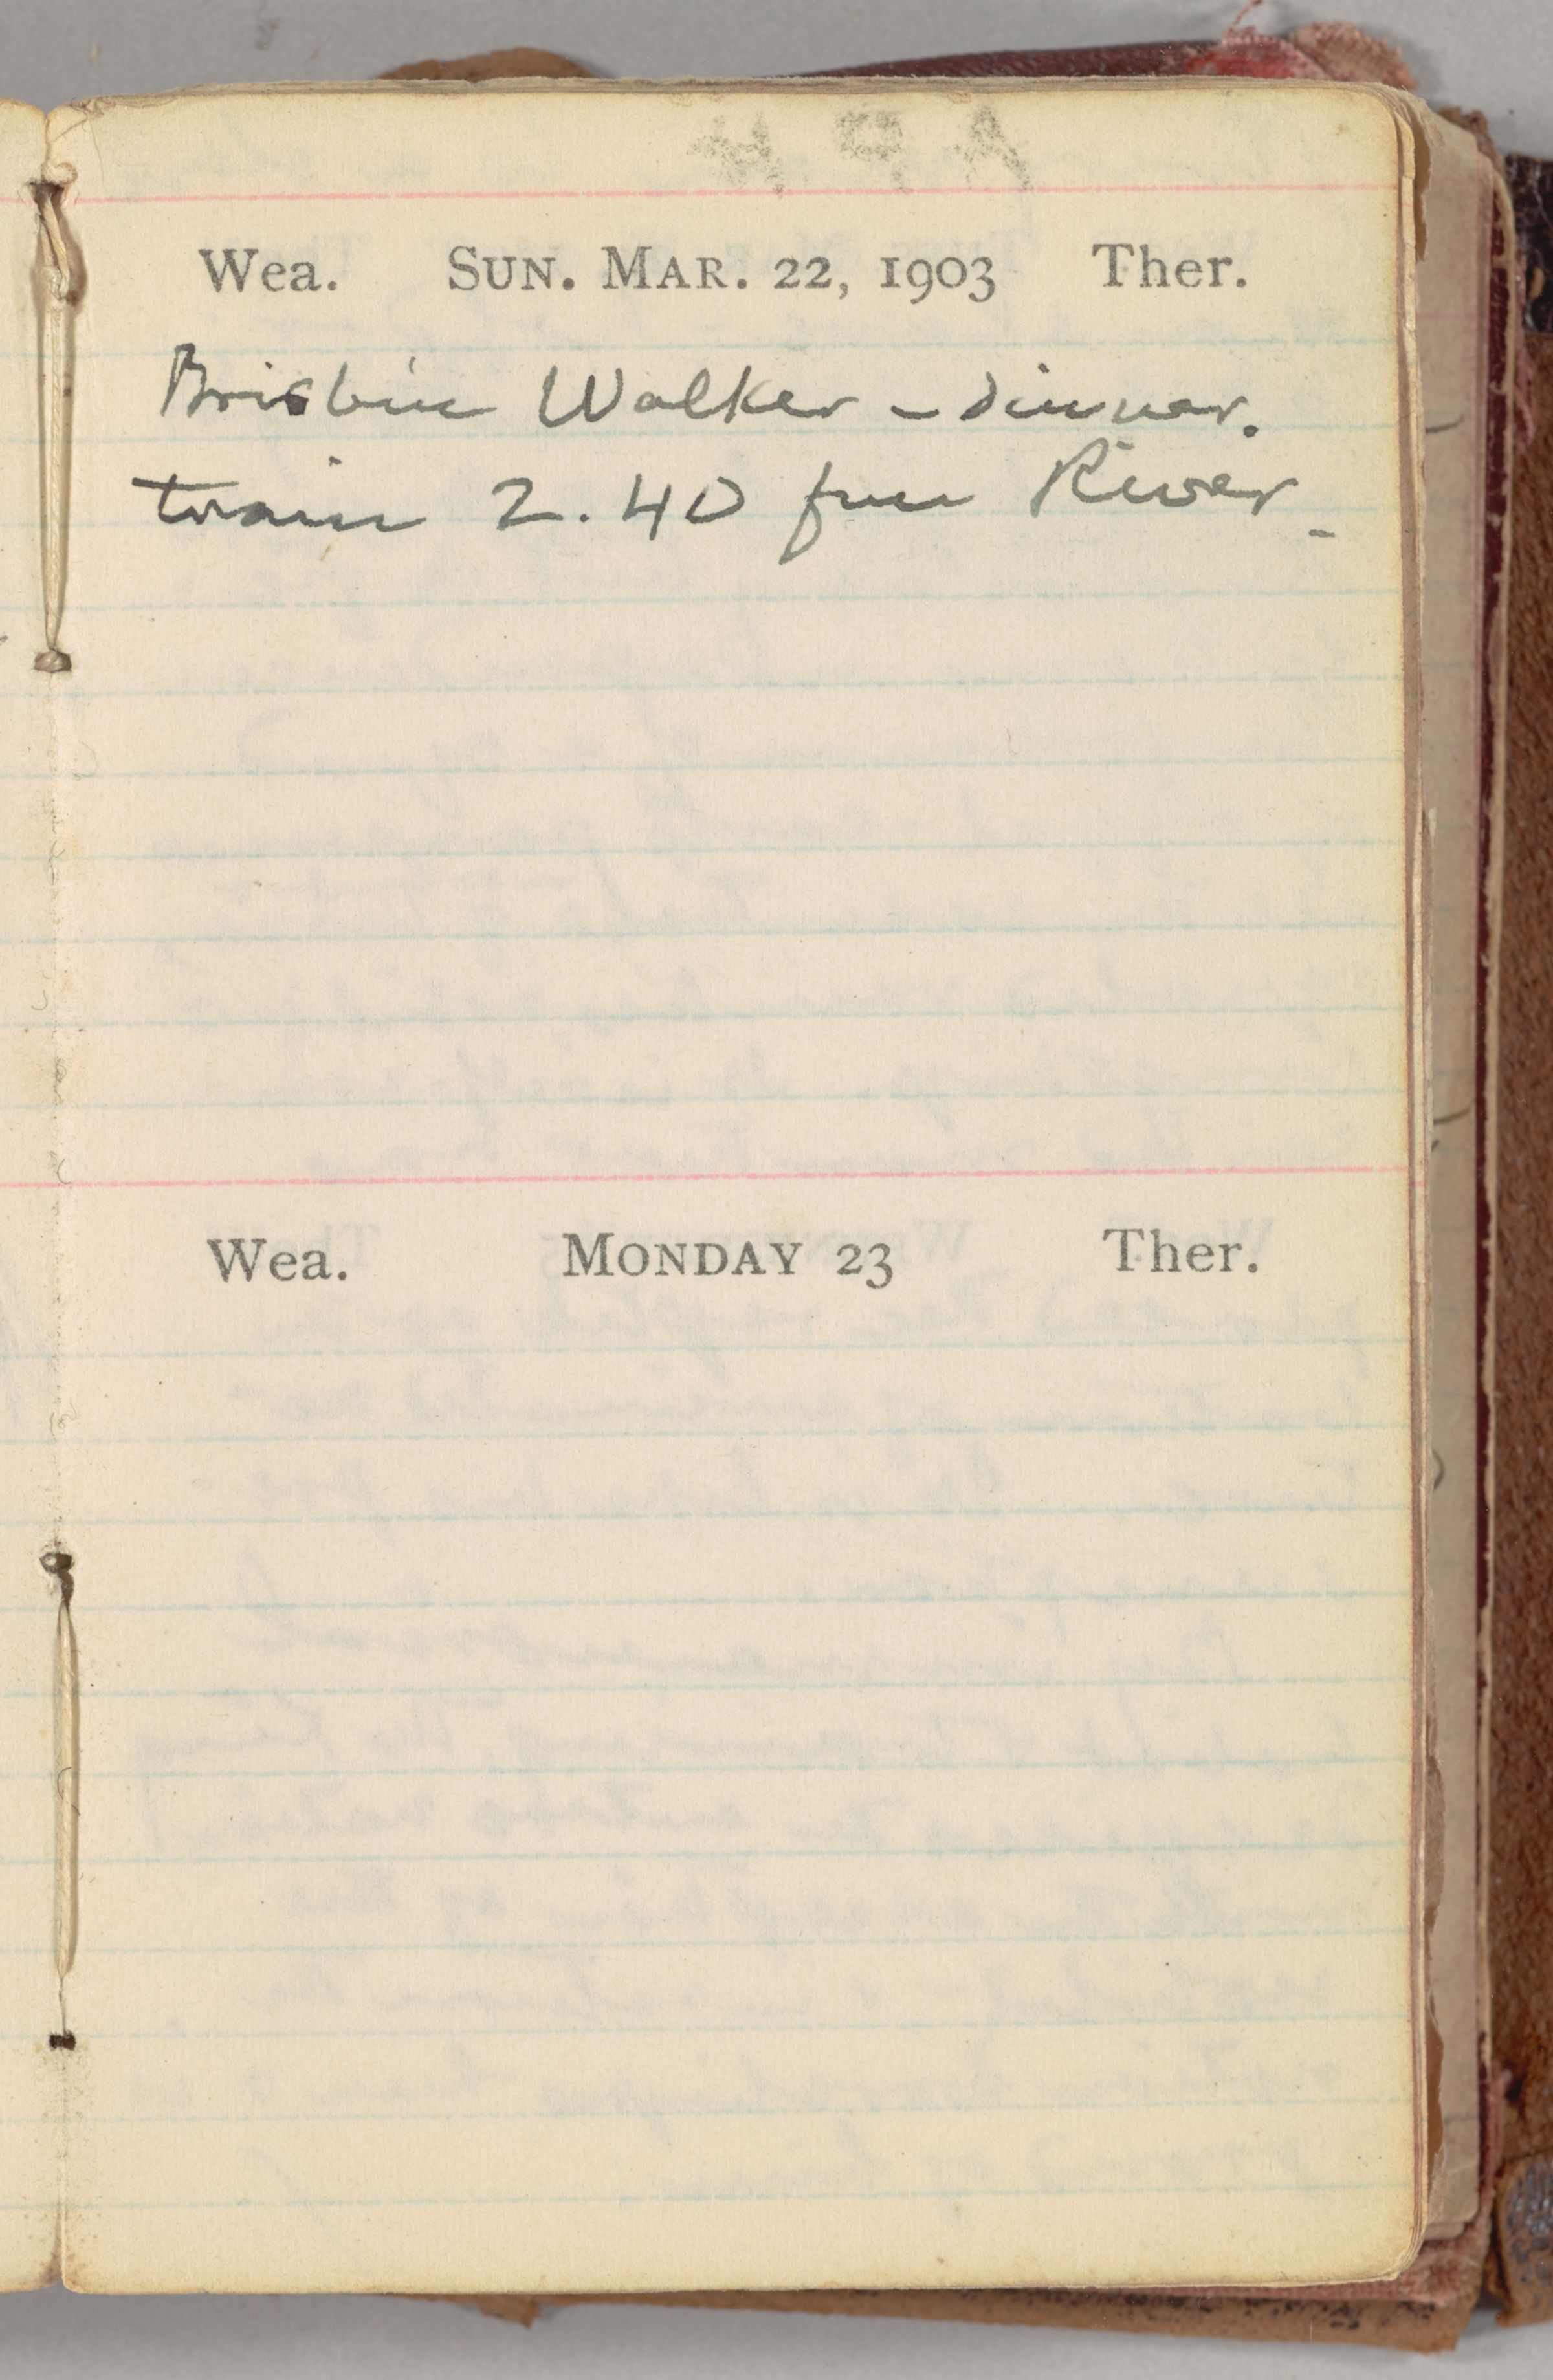 Wea. SUN. MAR. 22, 1903 Ther.
Brisbin Walker - dinner.
train 2.40 from River -
Wea. MONDAY 23 Ther.